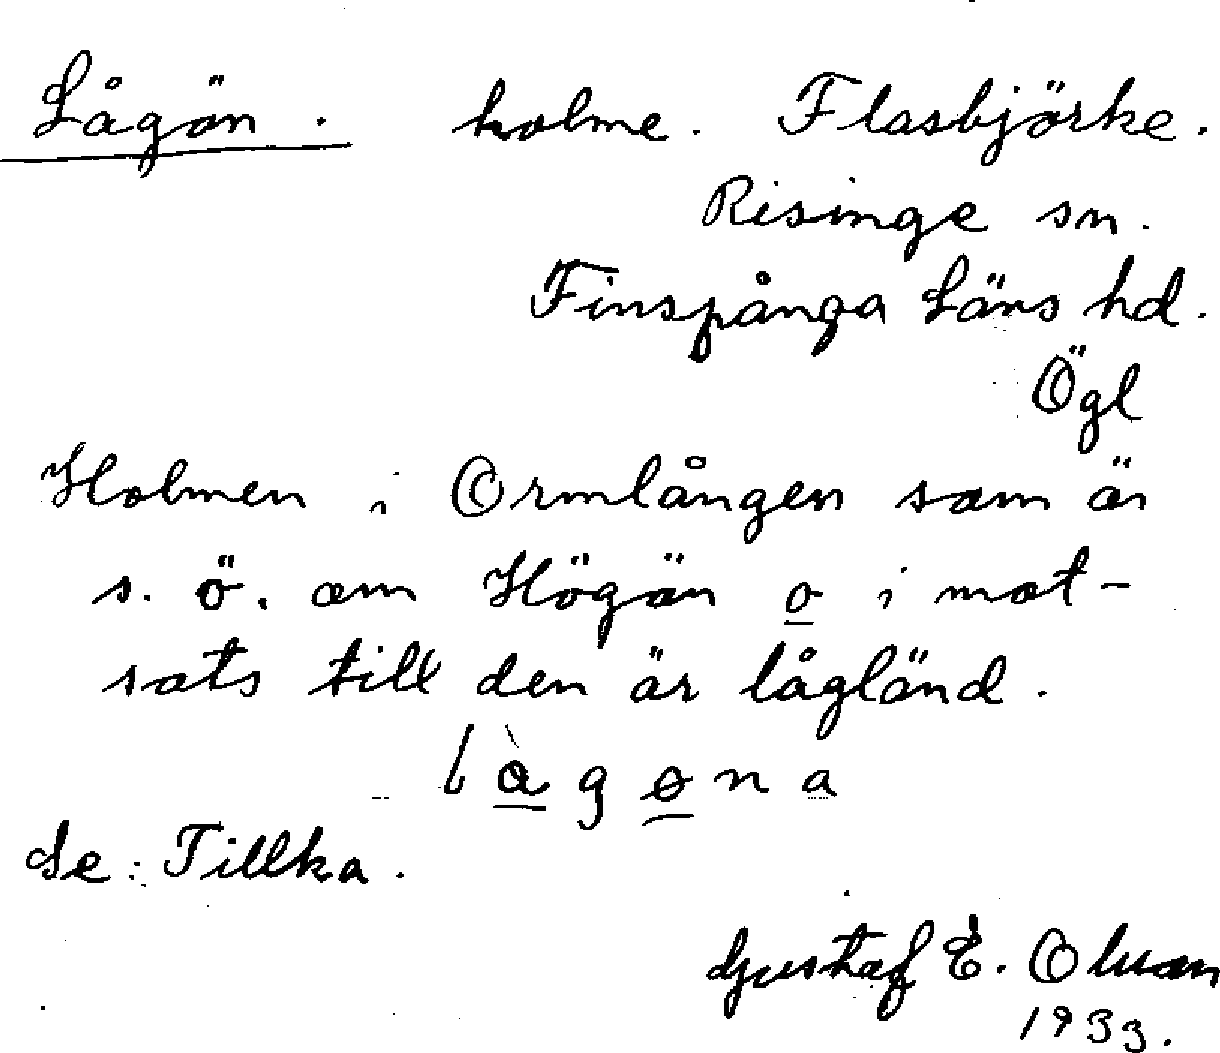 Lågön. holme. Flasbjörke.
Risinge sn.
Finspånga Läns hd.
Ögl
Holmen i Ormlången som är
s. ö. om Högön o i mot-
sats till den är lågländ.
Se: Tillka.
Gustaf E.
1933.